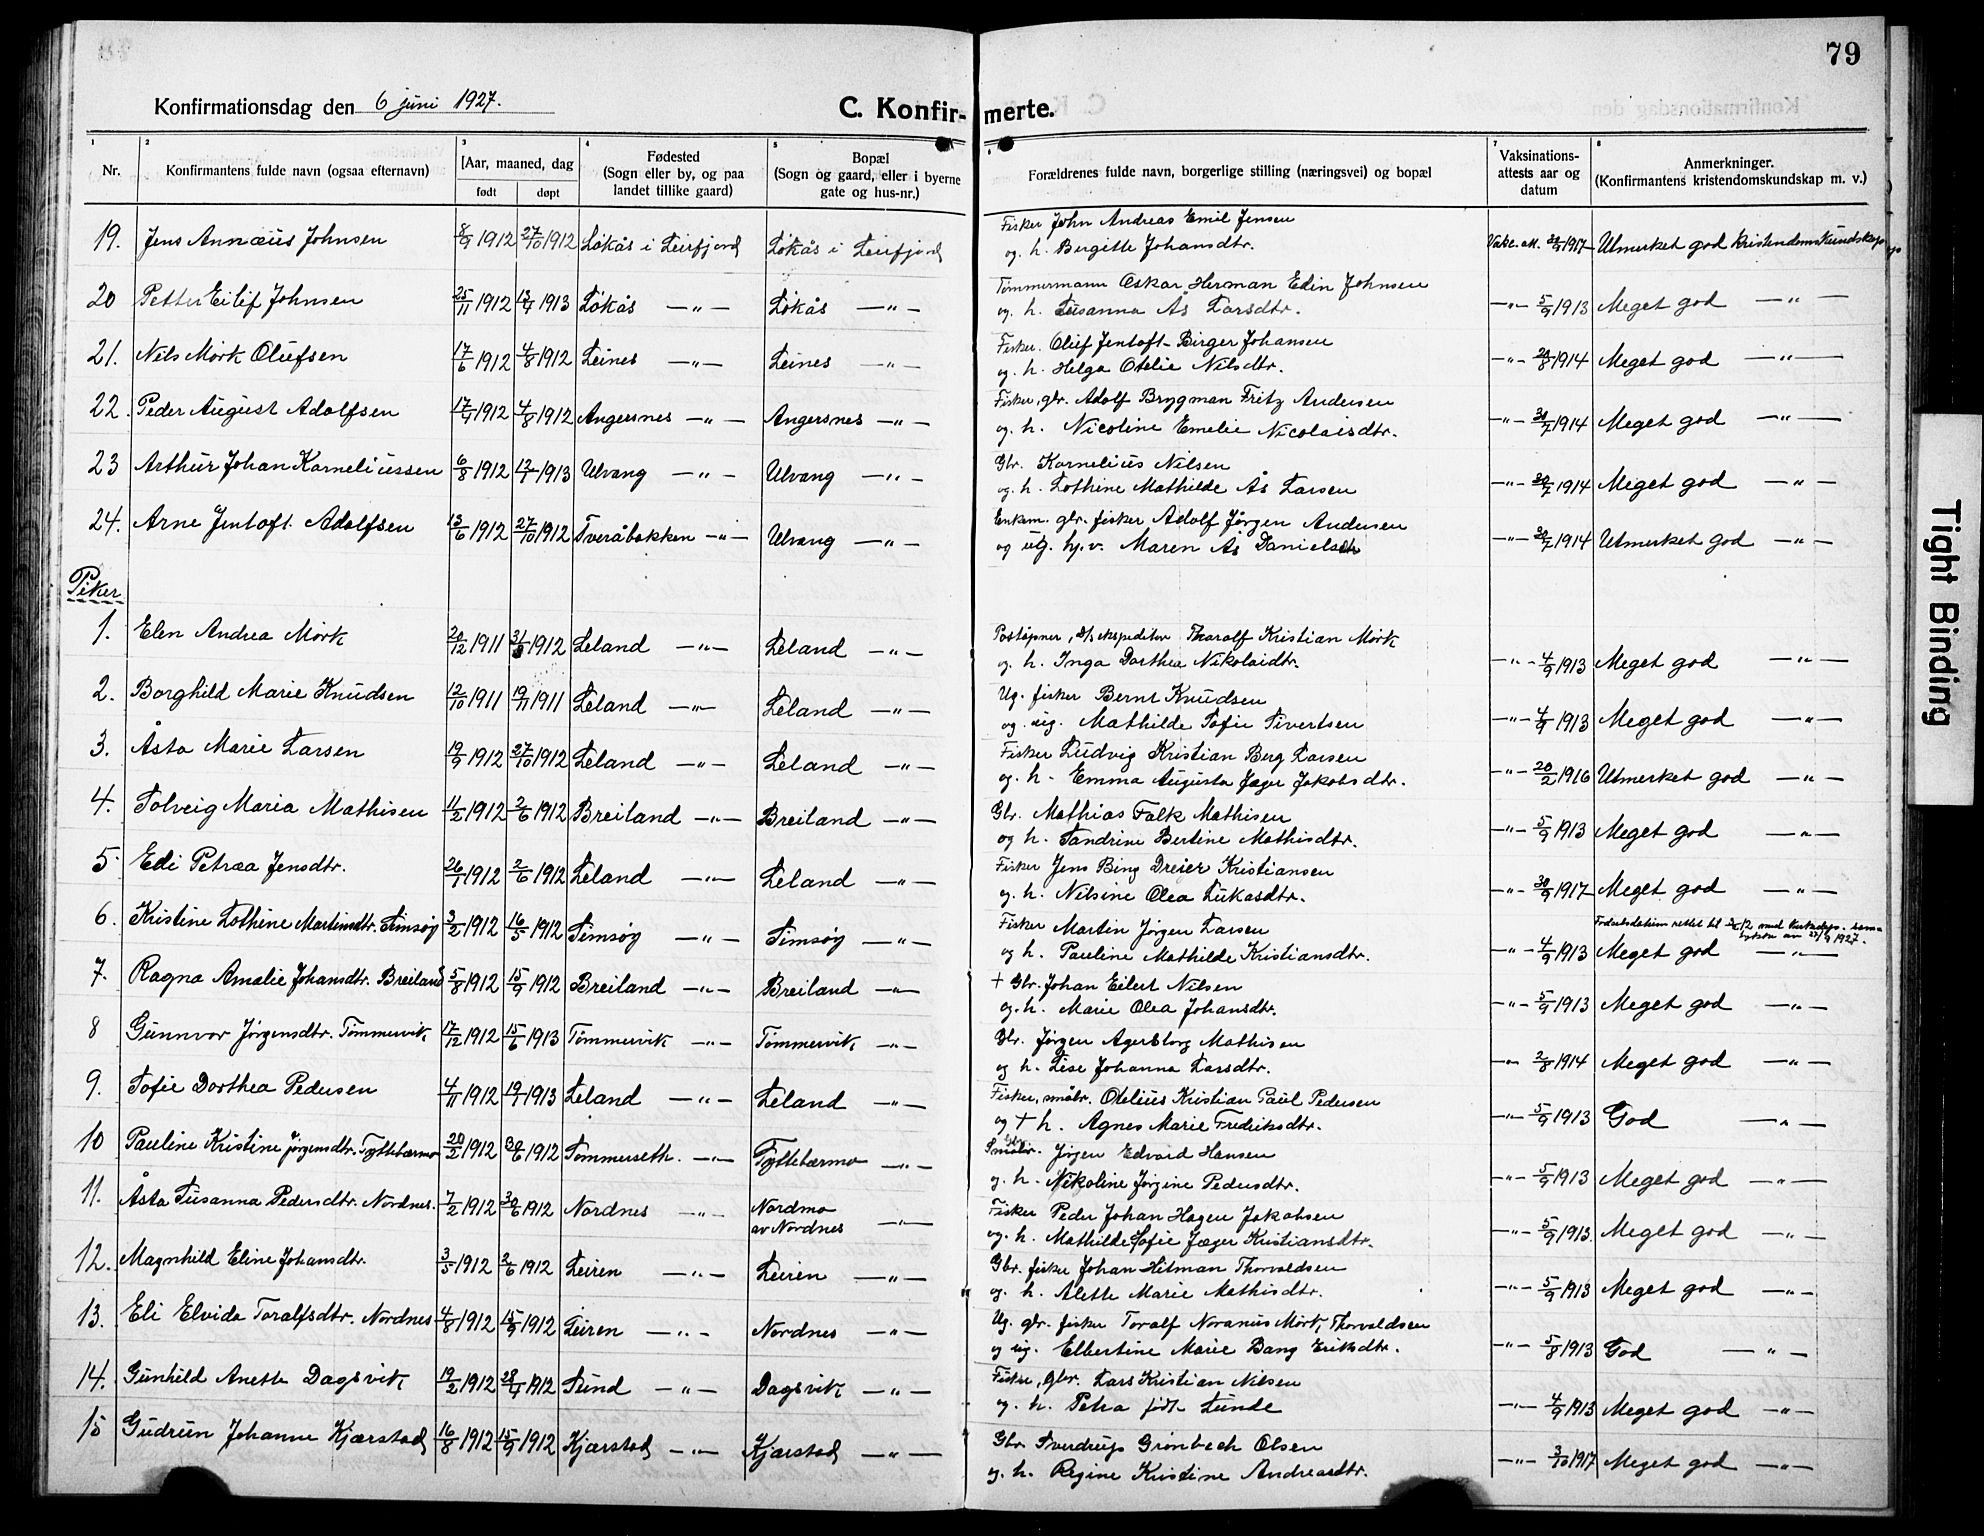 79
Konfirmationsdag den 6 juni 1927.
C. Konfirmerte.
1 2 3 4 5 6 7 8
Nr. Konfirmantens fulde navn (ogsaa efternavn) Aar, maaned, dag født døpt Fødested (Sogn eller by, og paa landet tillike gaard) Bopæl (Sogn og gaard, eller i byerne gate og hus-nr.) Forældrenes fulde navn, borgerlige stilling (næringsvei) og bopæl Vaksinations-attests aar og datum Anmerkninger. (Konfirmantens kristendomskundskap m. v.)
19. Jens Annæus Johnsen 8/9 1912 27/10 1912 Løkås i Leirfjord Løkås i Leirfjord Fisker John Andreas Emil Jensen
og h. Birgitte Johansdtr. 1917 Utmerket god kristendomskundskap
20 Petter Eilif Johnsen 25/11 1912 1913 Løkås —"— Løkås —"— Tømmermann Oskar Herman Edin Johnsen
og h. Susanna Ås Larsdtr. —"— 5/9 1913 Meget god —"—
21. Nils Mørk Olufsen 17/6 1912 4/8 1912 Leines —"— Leines —"— Fisker. Oluf Jentoft Birger Johansen
og h. Helga Otelie Nilsdtr. —"— 1914 Meget god —"—
22. Peder August Adolfsen 1912 4/8 1912 Angersnes —"— Angersnes —"— Fisker, gbr. Adolf Brygman Fritz Andersen
og h. Nicoline Emelie Nicolaisdtr. —"— 30/7 1914 Meget god —"—
23 Arthur Johan Korneliussen 6/8 1912 1913 Ulvang —"— Ulvang —"— Gbr. Kornelius Nilsen
og h. Lothine Mathilde Ås Larsen —"— 30/7 1914 Meget god —"—
24. Arne Jentoft Adolfsen 13/6 1912 27/10 1912 Tveråbakken —"— Ulvang —"— Enkem. gbr. fisker Adolf Jørgen Andersen
og ug. hj.v. Maren Ås Danielsdtr —"— 30/7 1914 Utmerket god —"—
Piker
1. Elen Andrea Mørk 20/12 1911 1912 Leland —"— Leland —"— Postøpner, d/s ekspeditør Tharalf Kristian Mørk
og h. Inga Dorthea Nikolaidtr. —"— 4/9 1913 Meget god —"—
2. Borghild Marie Knudsen 12/10 1911 19/11 1911 Leland —"— Leland —"— Ug. fisker Bernt Knudsen
og ug. Mathilde Sofie Sivertsen —"— 4/9 1913 Meget god —"—
3. Åsta Marie Larsen 19/9 1912 27/10 1912 Leland —"— Leland —"— Fisker Ludvig Kristian Berg Larsen
og h. Emma Augusta Jæger Jakobsdtr. —"— 20/2 1916 Utmerket god —"—
4. Solveig Maria Mathisen 11/2 1912 2/6 1912 Breiland —"— Breiland —"— Gbr. Mathias Falk Mathisen
og h. Sandrine Bertine Mathisdtr. —"— 5/9 1913 Meget god —"—
5. Edi Petræa Jensdtr. 26/1 1912 2/6 1912 Leland —"— Leland —"— Fisker Jens Bing Dreier Kristiansen
og h. Nilsine Olea Lukasdtr. —"— 30/9 1917 Meget god —"—
6. Kristine Lothine Martinsdtr. Simsøy 3/2 1912 16/5 1912 Simsøy —"— Simsøy —"— Fisker Martin Jørgen Larsen Fødselsdatum rettet til
og h. Pauline Mathilde Kristiansdtr. —"— 4/9 1913 Meget god —"—
7. Ragna Amalie Johansdtr. Breiland 5/8 1912 15/9 1912 Breiland —"— Breiland —"— + Gbr. Johan Eilert Nilsen
og h. Marie Olea Johansdtr. —"— 5/9 1913 Meget god —"—
8 Gunnvor Jørgensdtr. Tømmervik 17/12 1912 15/6 1913 Tømmervik —"— Tømmervik —"— Gbr. Jørgen Agerborg Mathisen
og h. Lise Johanna Larsdtr. —"— 2/8 1914 Meget god —"—
9. Sofie Dorthea Pedersen 4/11 1912 19/1 1913 Leland —"— Leland —"— Fisker, småbr. Otelius Kristian Paul Pedersen
og + h. Agnes Marie Fredriksdtr. —"— 5/9 1913 God —"—
10 Pauline Kristine Jørgensdtr. Tyttebærmo 20/2 1912 30/6 1912 Sømmerseth. —"— Tyttebærmo —"— Småbr. Jørgen Edvard Hansen
og h. Nikoline Jørgine Pedersdtr. —"— 5/9 1913 Meget god —"—
11. Åsta Susanna Pedersdtr. Nordnes. 7/2 1912 30/6 1912 Nordnes —"— Nordmo av Nordnes —"— Fisker Peder Johan Hagen Jakobsen
og h. Mathilde Sofie Jæger Kristiansdtr. —"— 5/9 1913 Meget god —"—
12. Magnhild Eline Johansdtr. 3/5 1912 2/6 1912 Leiren —"— Leiren —"— Gbr. fisker Johan Hilman Thorvaldsen
og h. Alette Marie Mathisdtr. —"— 5/9 1913 Meget god —"—
13. Eli Elvida Toralfsdtr. Nordnes 4/8 1912 15/9 1912 Leiren —"— Nordnes —"— Ug. gbr. fisker Toralf Noranus Mørk Thorvaldsen
og ug. Elbertine Marie Bang Eriksdtr. —"— 5/8 1913 God —"—
14. Gunhild Anette Dagsvik 19/2 1912 28/4 1912 Sund —"— Dagsvik —"— Fisker, gbr. Lars Kristian Nilsen
og h. Petra født Lunde —"— 4/9 1913 Meget god —"—
15 Gudrun Johanne Kjærstad 16/8 1912 15/9 1912 Kjærstad —"— Kjærstad —"— Gbr Sverdrup Grønbech Olsen
og h. Regine Kristine Andreasdtr. —"— 3/10 1917 Meget god —"—
Tight Binding